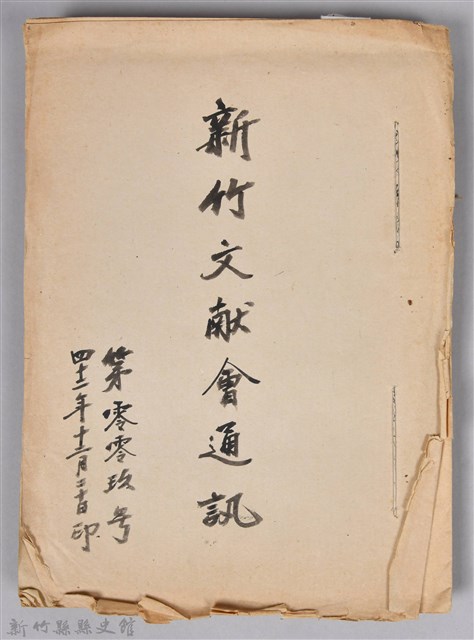 新竹文献會通訊
第零零玖号
四十二年十二月二十日印
新竹縣縣史館